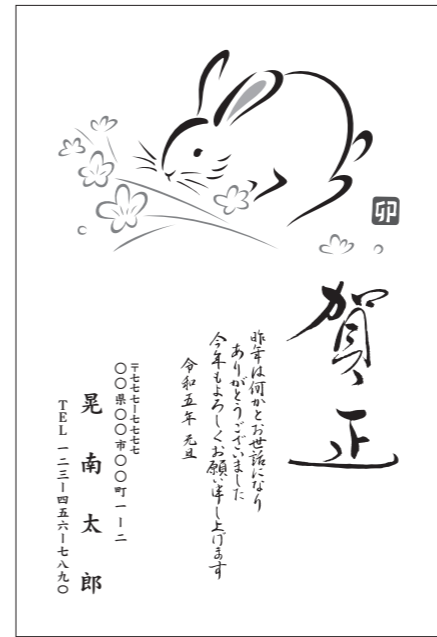 卯
賀正
昨年は何かとお世話になり
ありがとうございました
今年もよろしくお願い申し上げます
令和五年 元旦
〒七七七ー七七七七
〇〇県〇〇市〇〇町一ー二
晃南太郎
TEL 一二三ー四五六ー七八九〇